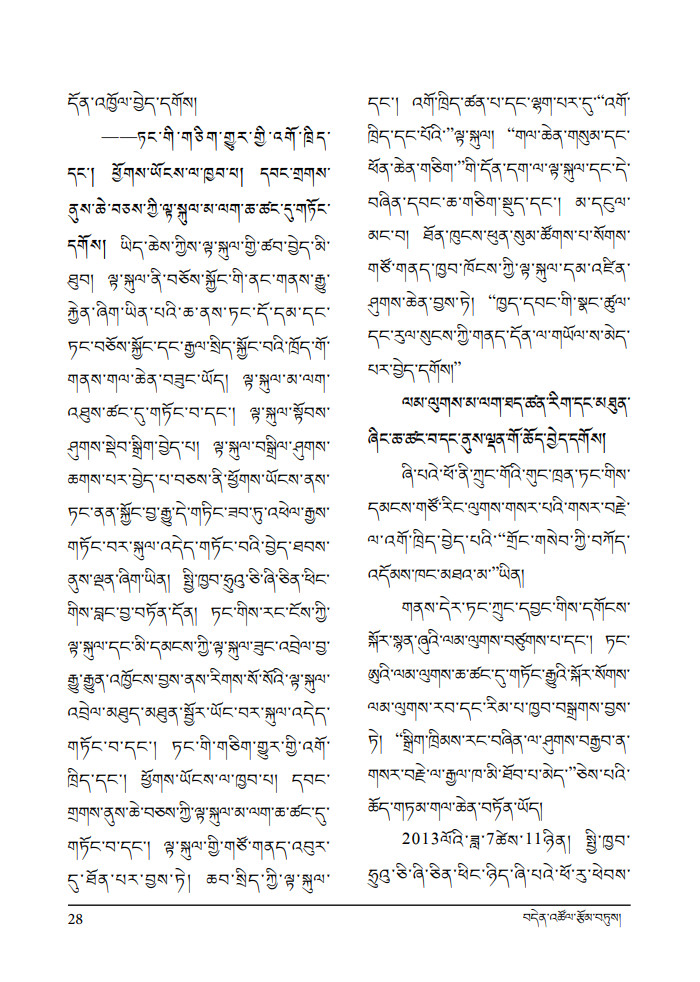 དོན་འཁྱོལ་བྱེད་དགོས།
——ཏང་གི་གཅིག་གྱུར་གྱི་འགོ་ཁྲིད་
དང་། ཕྱོགས་ཡོངས་ལ་ཁྱབ་པ། དབང་གྲགས་
ནུས་ཆེ་བཅས་ཀྱི་ལྟ་སྐུལ་མ་ལག་ཆ་ཚང་དུ་གཏོང་
དགོས། ཡིད་ཆེས་ཀྱིས་ལྟ་སྐུལ་གྱི་ཚབ་བྱེད་མི་
ཐུབ། ལྟ་སྐུལ་ནི་བཅོས་སྐྱོང་གི་ནང་གནས་རྒྱུ་
རྐྱེན་ཞིག་ཡིན་པའི་ཆ་ནས་ཏང་དོ་དམ་དང་
ཏང་བཅོས་སྐྱོང་དང་རྒྱལ་སྲིད་སྐྱོང་བའི་ཁྲོད་གོ་
གནས་གལ་ཆེན་བཟུང་ཡོད། ལྟ་སྐུལ་མ་ལག་
འཐུས་ཚང་དུ་གཏོང་བ་དང་། ལྟ་སྐུལ་སྟོབས་
ཤུགས་སྡེབ་སྒྲིག་བྱེད་པ། ལྟ་སྐུལ་བསྒྲིལ་ཤུགས་
ཆགས་པར་བྱེད་པ་བཅས་ནི་ཕྱོགས་ཡོངས་ནས་
ཏང་ནན་སྐྱོང་བྱ་རྒྱུ་དེ་གཏིང་ཟབ་ཏུ་འཕེལ་རྒྱས་
གཏོང་བར་སྐུལ་འདེད་གཏོང་བའི་བྱེད་ཐབས་
ནུས་ལྡན་ཞིག་ཡིན། སྤྱི་ཁྱབ་ཧྲུའུ་ཅི་ཞི་ཅིན་ཕིང་
གིས་བླང་བྱ་བཏོན་དོན། ཏང་གིས་རང་ངོས་ཀྱི་
ལྟ་སྐུལ་དང་མི་དམངས་ཀྱི་ལྟ་སྐུལ་ཟུང་འབྲེལ་བྱ་
རྒྱུ་རྒྱུན་འཁྱོངས་བྱས་ནས་རིགས་སོ་སོའི་ལྟ་སྐུལ་
འབྲེལ་མཐུད་མཐུན་སྦྱོར་ཡོང་བར་སྐུལ་འདེད་
གཏོང་བ་དང་། ཏང་གི་གཅིག་གྱུར་གྱི་འགོ་
ཁྲིད་དང་། ཕྱོགས་ཡོངས་ལ་ཁྱབ་པ། དབང་
གྲགས་ནུས་ཆེ་བཅས་ཀྱི་ལྟ་སྐུལ་མ་ལག་ཆ་ཚང་དུ་
གཏོང་བ་དང་། ལྟ་སྐུལ་གྱི་གཙོ་གནད་འབུར་
དུ་ཐོན་པར་བྱས་ཏེ། ཆབ་སྲིད་ཀྱི་ལྟ་སྐུལ་
དང་། འགོ་ཁྲིད་ཚན་པ་དང་ལྷག་པར་དུ་“འགོ་
ཁྲིད་དང་པོའི་”ལྟ་སྐུལ། “གལ་ཆེན་གསུམ་དང་
ཕོན་ཆེན་གཅིག་”གི་དོན་དག་ལ་ལྟ་སྐུལ་དང་དེ་
བཞིན་དབང་ཆ་གཅིག་སྡུད་དང་། མ་དངུལ་
མང་བ། ཐོན་ཁུངས་ཕུན་སུམ་ཚོགས་པ་སོགས་
གཙོ་གནད་ཁྱབ་ཁོངས་ཀྱི་ལྟ་སྐུལ་དམ་འཛིན་
ཤུགས་ཆེན་བྱས་ཏེ། “ཁྱད་དབང་གི་སྣང་ཚུལ་
དང་རུལ་སུངས་ཀྱི་གནད་དོན་ལ་གཡོལ་ས་མེད་
པར་བྱེད་དགོས།”
ལམ་ལུགས་མ་ལག་ཐད་ཚན་རིག་དང་མཐུན་
ཞིང་ཆ་ཚང་བ་དང་ནུས་ལྡན་གོ་ཆོད་བྱེད་དགོས།
ཞི་པའེ་ཕོ་ནི་ཀྲུང་གོའི་གུང་ཁྲན་ཏང་གིས་
དམངས་གཙོ་རིང་ལུགས་གསར་པའི་གསར་བརྗེ་
ལ་འགོ་ཁྲིད་བྱེད་པའི་“གྲོང་གསེབ་ཀྱི་བཀོད་
འདོམས་ཁང་མཐའ་མ་”ཡིན།
གནས་དེར་ཏང་ཀྲུང་དབྱང་གིས་དགོངས་
སྐོར་སྙན་ཞུའི་ལམ་ལུགས་བཙུགས་པ་དང་། ཏང་
ཨུའི་ལམ་ལུགས་ཆ་ཚང་དུ་གཏོང་རྒྱུའི་སྐོར་སོགས་
ལམ་ལུགས་རབ་དང་རིམ་པ་ཁྱབ་བསྒྲགས་བྱས་
ཏེ། “སྒྲིག་ཁྲིམས་རང་བཞིན་ལ་ཤུགས་བརྒྱབ་ན་
གསར་བརྗེ་ལ་རྒྱལ་ཁ་མི་ཐོབ་པ་མེད་”ཅེས་པའི་
ཆོད་གཏམ་གལ་ཆེན་བཏོན་ཡོད།
2013ལོའི་ཟླ་7ཚེས་11ཉིན། སྤྱི་ཁྱབ་
ཧྲུའུ་ཅི་ཞི་ཅིན་ཕིང་ཉིད་ཞི་པའེ་ཕོ་རུ་ཕེབས་
28 བདེན་འཚོལ་རྩོམ་བཏུས།